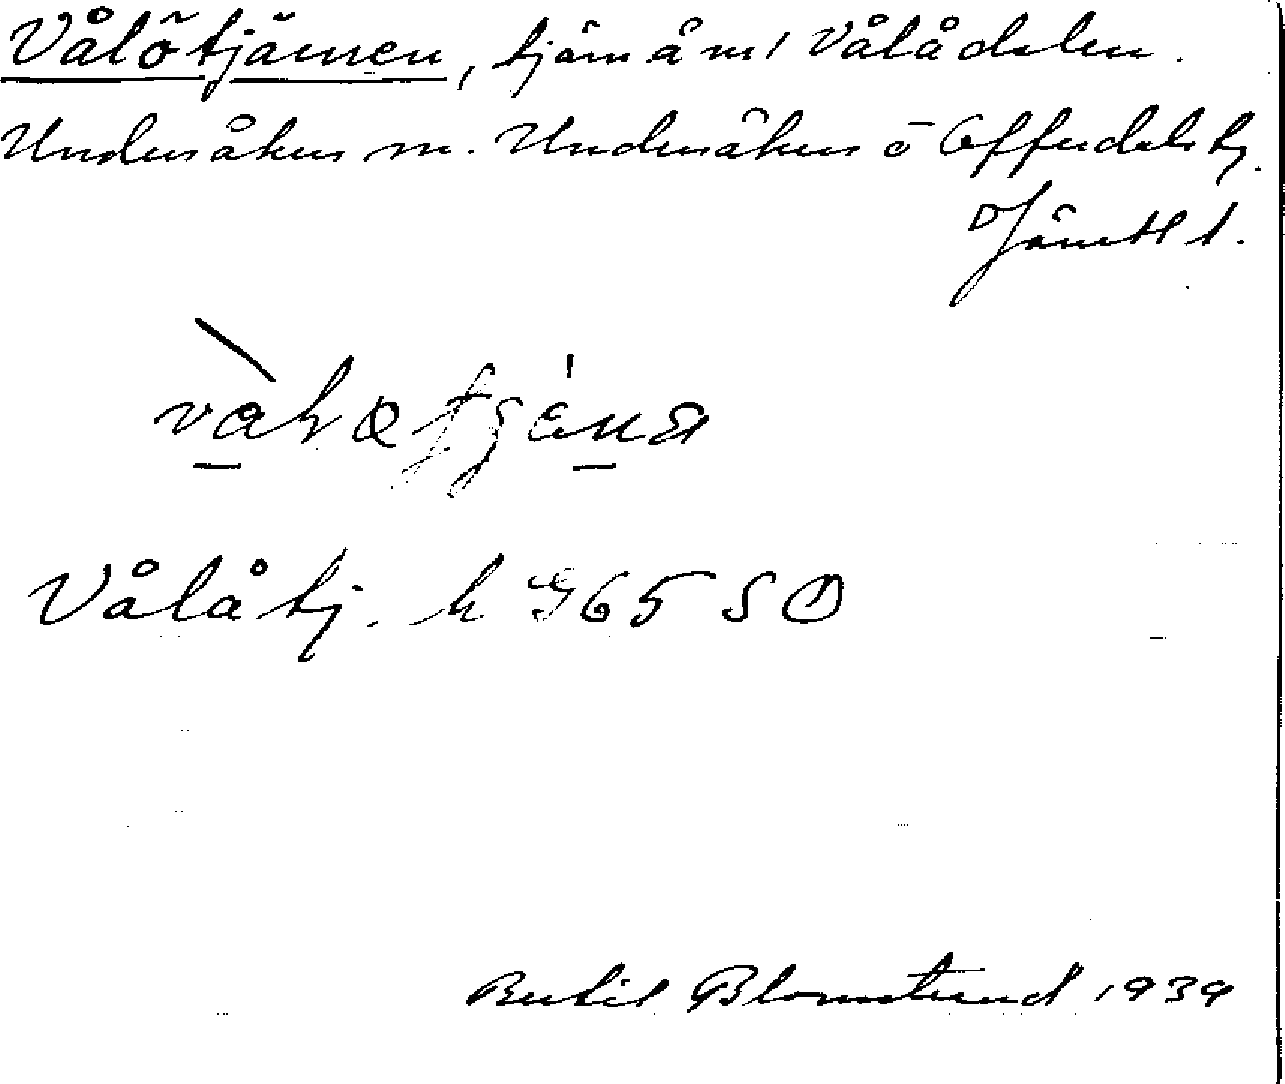 Vålötjärnen, tjärn å m/ Vålådalen.
Undersåkers sn. Undersåkers o Offerdals tg.
Jämtl l.
Vålåtj. k 965 SO
Bertil Blomstrand 1939